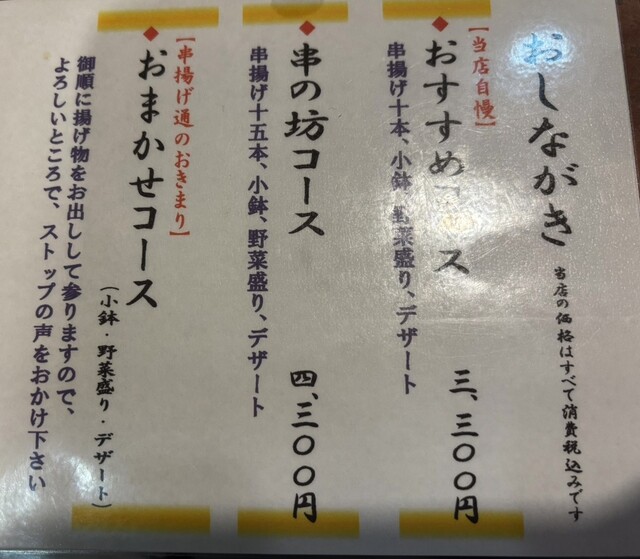 おしながき
当店の価格はすべて消費税込みです
【当店自慢】
◆おすすめコース
三、三〇〇円
串揚げ十本、小鉢、野菜盛り、デザート
◆串の坊コース
四、三〇〇円
串揚げ十五本、小鉢、野菜盛り、デザート
【串揚げ通のおきまり】
◆おまかせコース
(小鉢・野菜盛り・デザート)
御順に揚げ物をお出しして参りますので、
よろしいところで、ストップの声をおかけ下さい